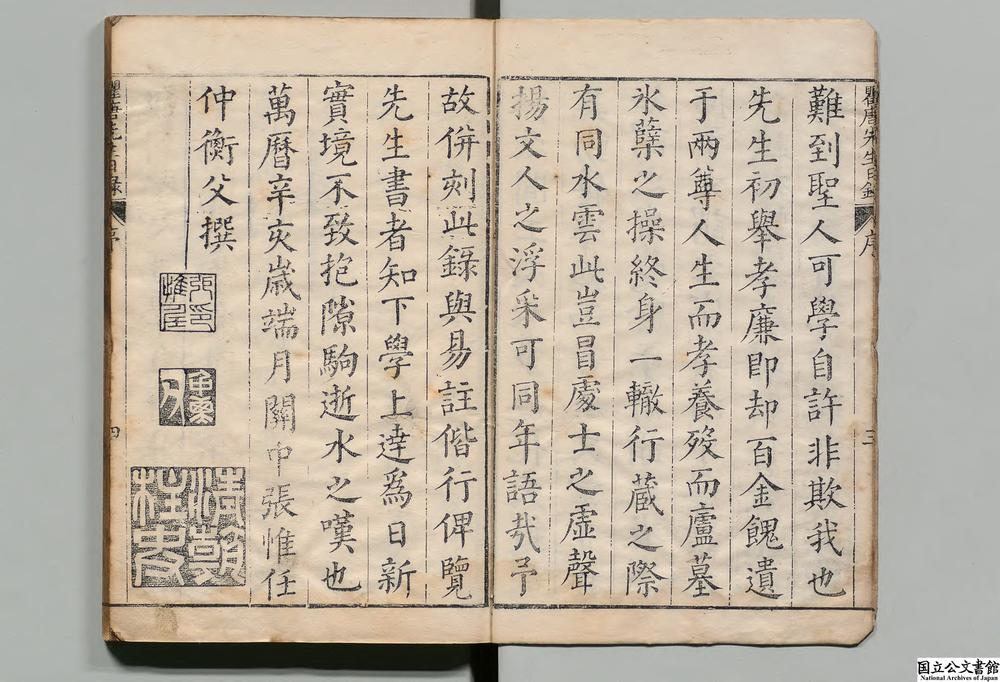 難到聖人可學自許非欺我也
先生初舉孝廉即却百金餽遺
于兩尊人生而孝養歿而廬墓
氷蘖之操終身一轍行蔵之際
有同水雲此豈冒處士之虛聲
揚文人之浮采可同年語㢤予
故併刻此錄與易註偕行俾覽
先生書者知下學上達爲日新
實境不致抱隙駒逝水之嘆也
萬曆辛亥歲端月關中張惟任
仲衡父撰
瞿唐先生日錄
序
三
瞿唐先生日錄
序
四
国立公文書館
National Archives of Japan